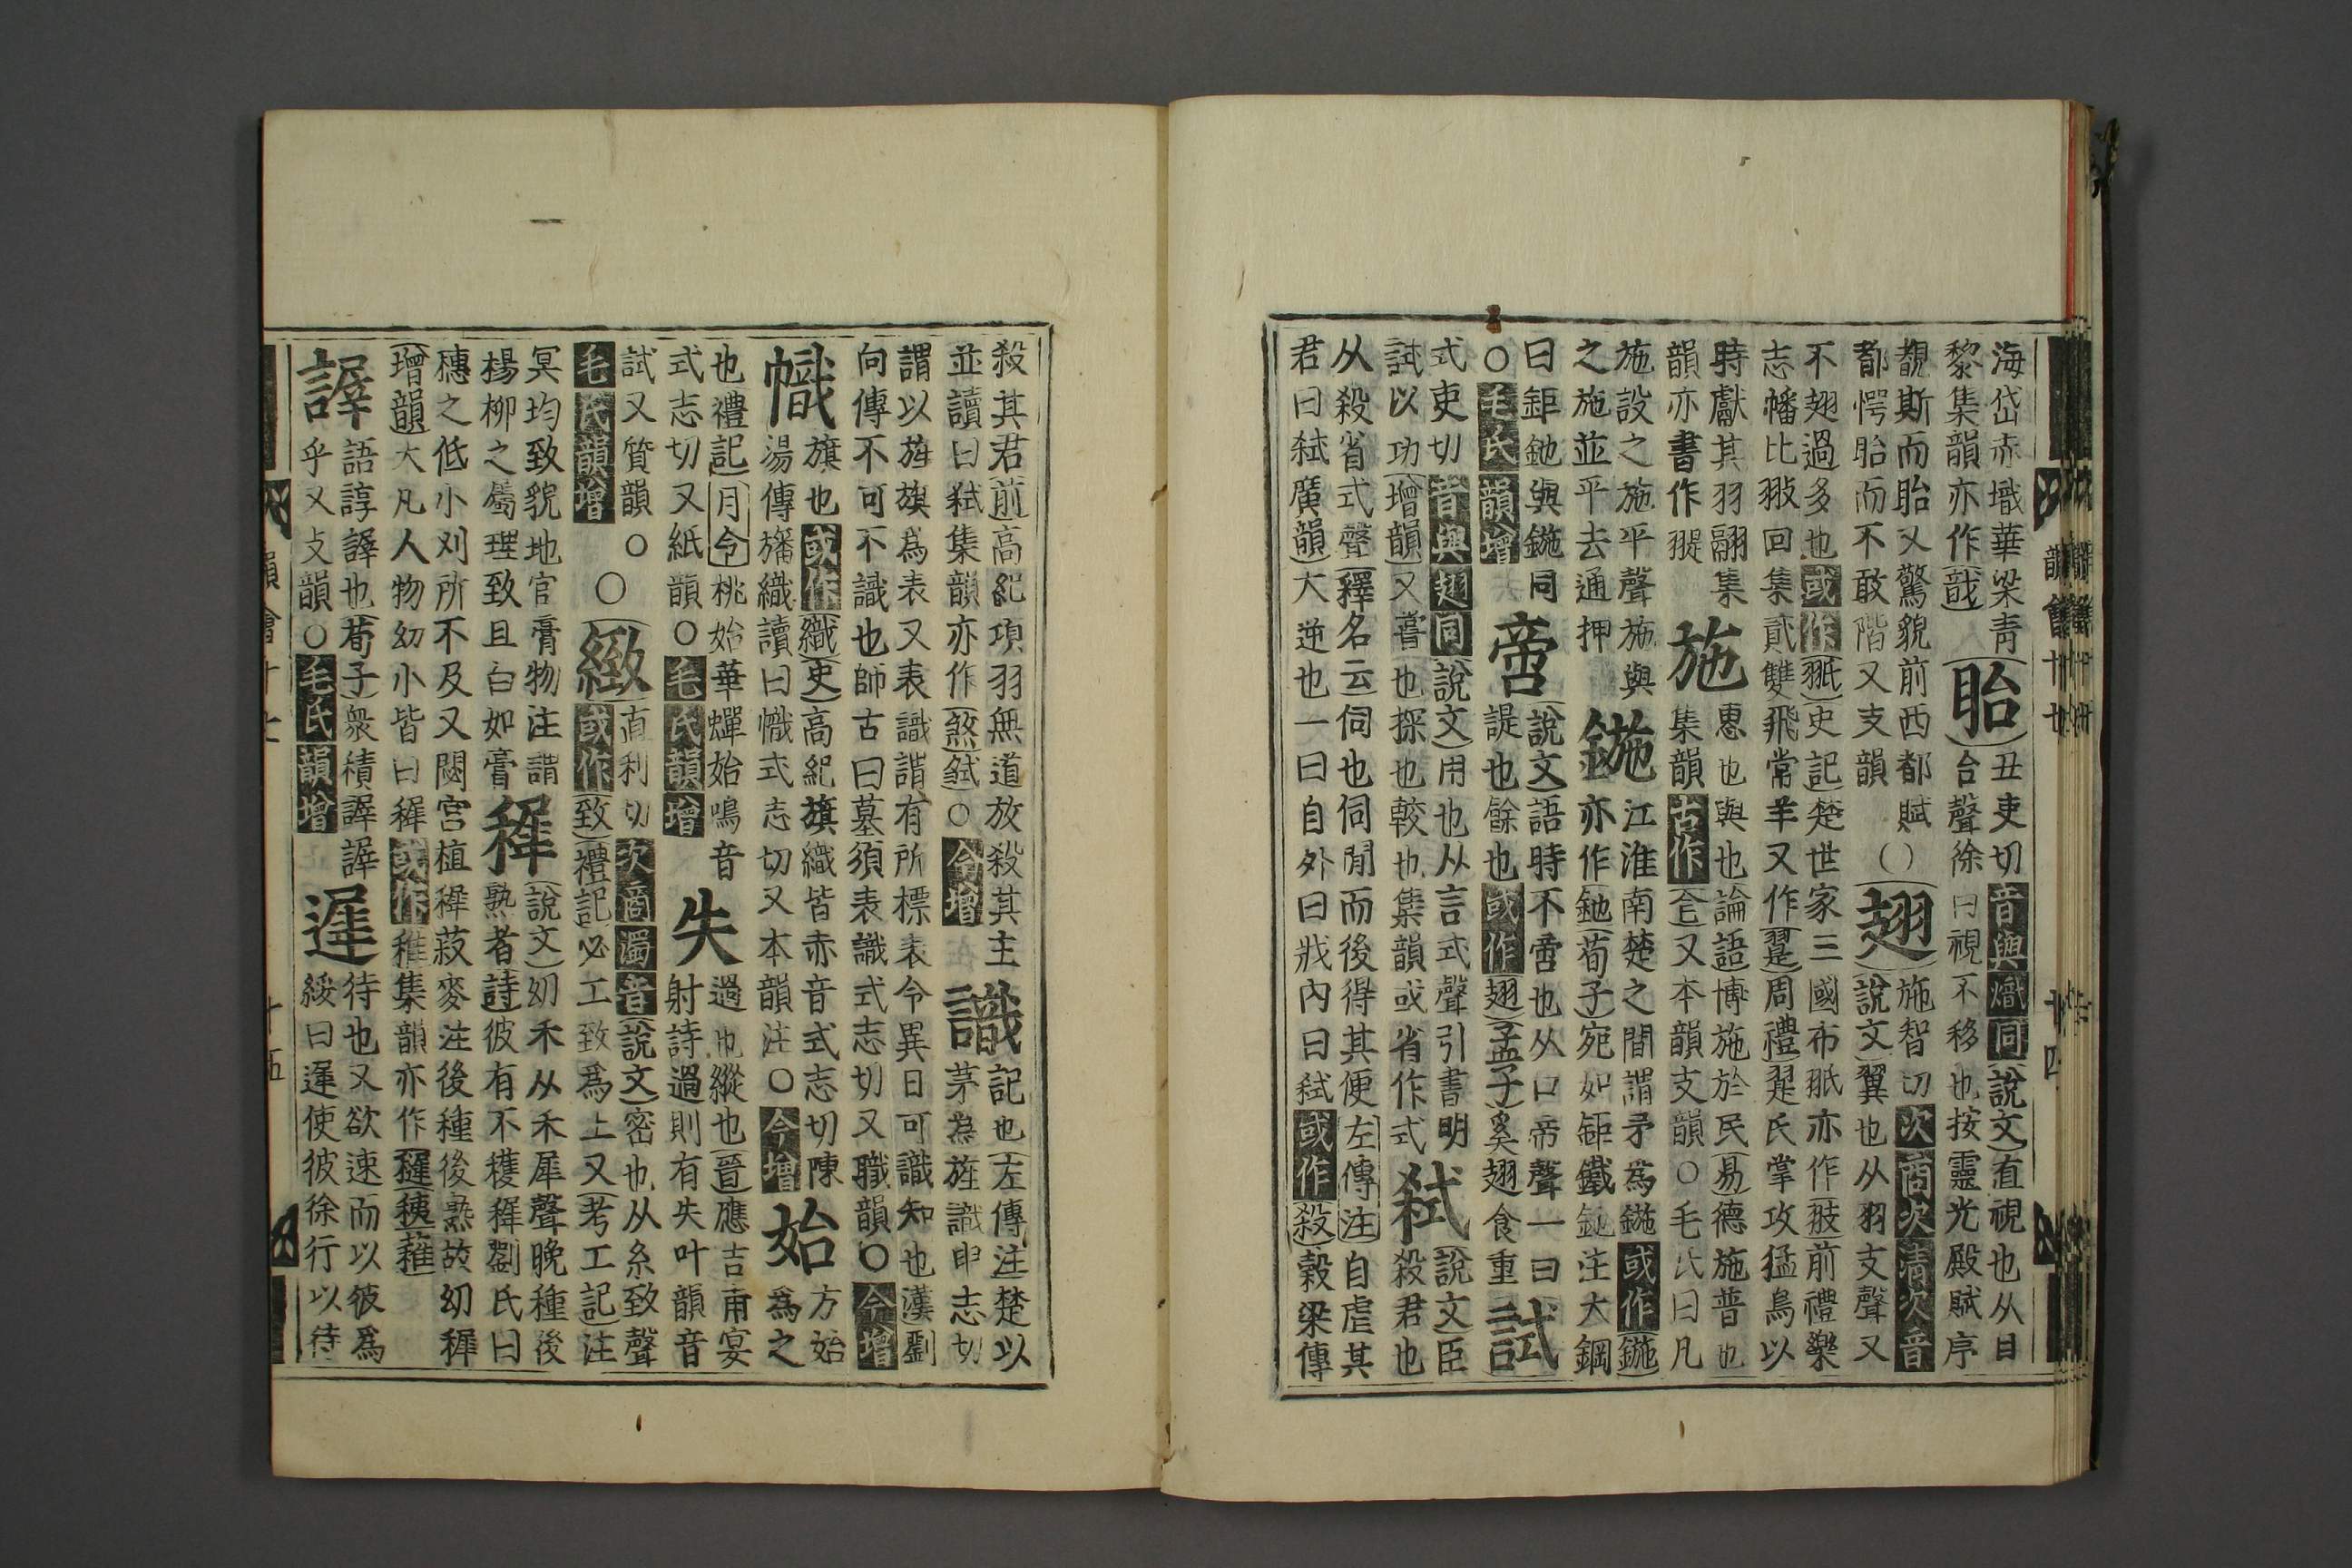 海岱赤熾華梁靑
黎集韻亦作戠
眙
丑吏切音與熾同說文直視也从目
台聲徐曰視不移也按靈光殿賦序
覩斯而眙又驚貌前西都賦
都愕眙而不敢階又支韻
翅
施智切次商次淸次音
說文翼也从羽支聲又
不翅過多也或作翄史記楚世家三國布翄亦作䎶前禮樂
志幡比翄回集貳雙飛常羊又作翨周禮翨氏掌攻猛鳥以
時獻其羽翮集
韻亦書作翨
施
惠也與也論語博施於民易德施普也
集韻古作㐌又本韻支韻○毛氏曰凡
施設之施平聲施與
之施並平去通押
鍦
江淮南楚之間謂矛爲鍦或作鍦
亦作釶荀子宛如鉅鐵釶注大鋼
曰鉅釶與鍦同
○毛氏韻增
啻
說文語時不啻也从口帝聲一曰
諟也餘也或作翅孟子奚翅食重
試
式吏切音與翅同說文用也从言式聲引書明
試以功增韻又嘗也探也較也集韻或省作式
弒
說文臣
殺君也
从殺省式聲釋名云伺也伺閒而後得其便左傳注自虐其
君曰弒廣韻大逆也一曰自外曰戕內曰弒或作殺穀梁傳
殺其君前高紀項羽無道放殺其主
並讀曰弒集韻亦作煞弑○今增
識
記也左傳注楚以
茅為旌識申志切
謂以旌旗爲表又表識謂有所標表令異日可識知也漢劉
向傳不可不識也師古曰墓須表識式志切又職韻○今增
幟
旗也或作織史高紀旗織皆赤音式志切陳
湯傳旛織讀曰幟式志切又本韻注○今增
始
方始
為之
也禮記月令桃始華蟬始鳴音
式志切又紙韻○毛氏韻增
失
過也縱也晉應吉甫宴
射詩過則有失叶韻音
試又質韻○
毛氏韻增
○
緻
直利切次商濁音說文密也从糸致聲
或作致禮記必工致爲上又考工記注
冥均致貌地官膏物注謂
楊柳之屬理致且白如膏
稺
說文幼禾从禾犀聲晚種後
熟者詩彼有不穫稺劉氏曰
穗之低小刈所不及又閟宮植稺菽麥注後種後熟故幼稺
增韻大凡人物幼小皆曰稺或作稚集韻亦作穉稺䅲
謘
語諄謘也荀子衆積謘謘
乎又支韻○毛氏韻增
遟
待也又欲速而以彼爲
緩曰遟使彼徐行以待
韻會十七
十五